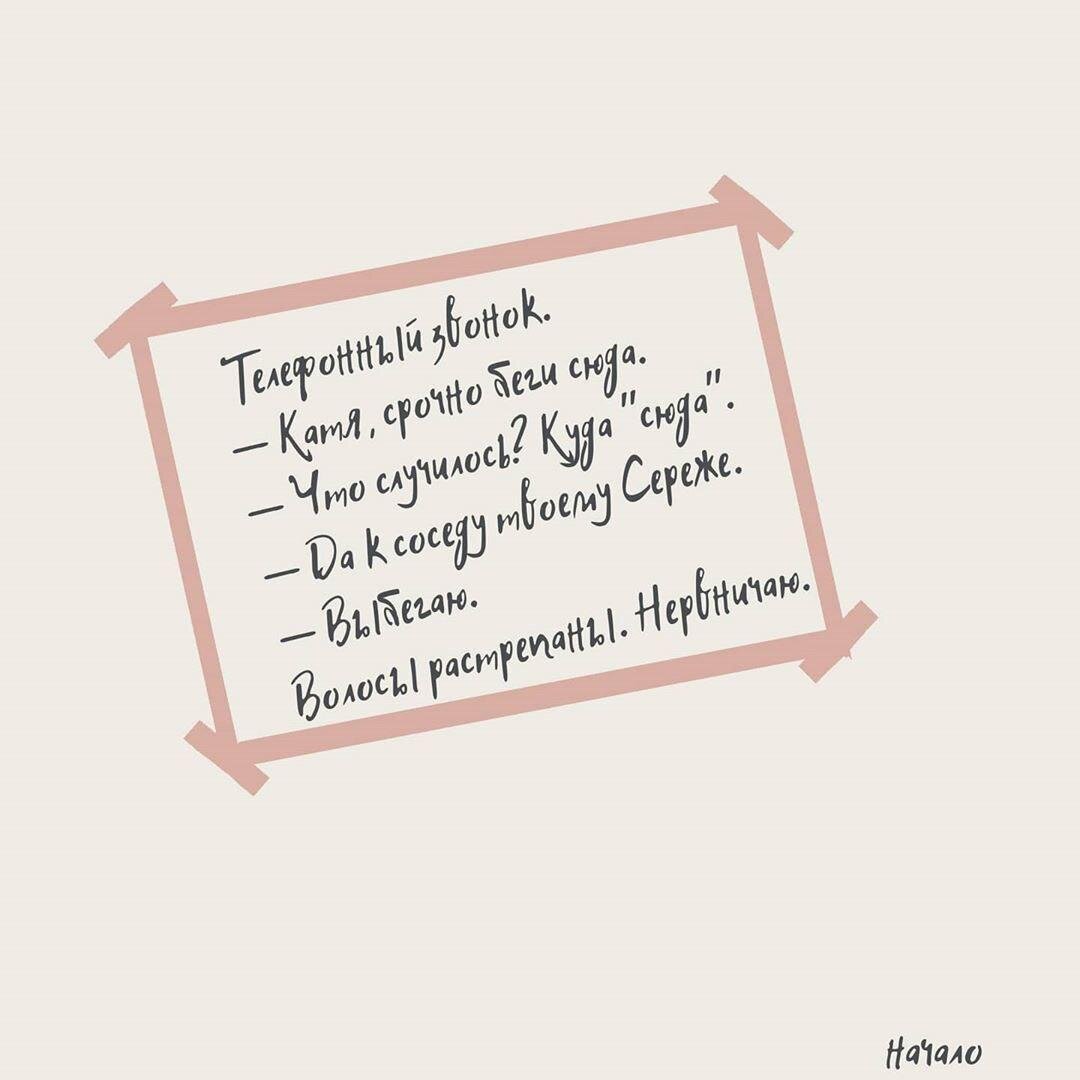 Телефонный звонок.
— Катя, срочно беги сюда.
— Что случилось? Куда "сюда".
— Да к соседу твоему Сереже.
— Выбегаю.
Волосы растрепаны. Нервничаю.
Начало